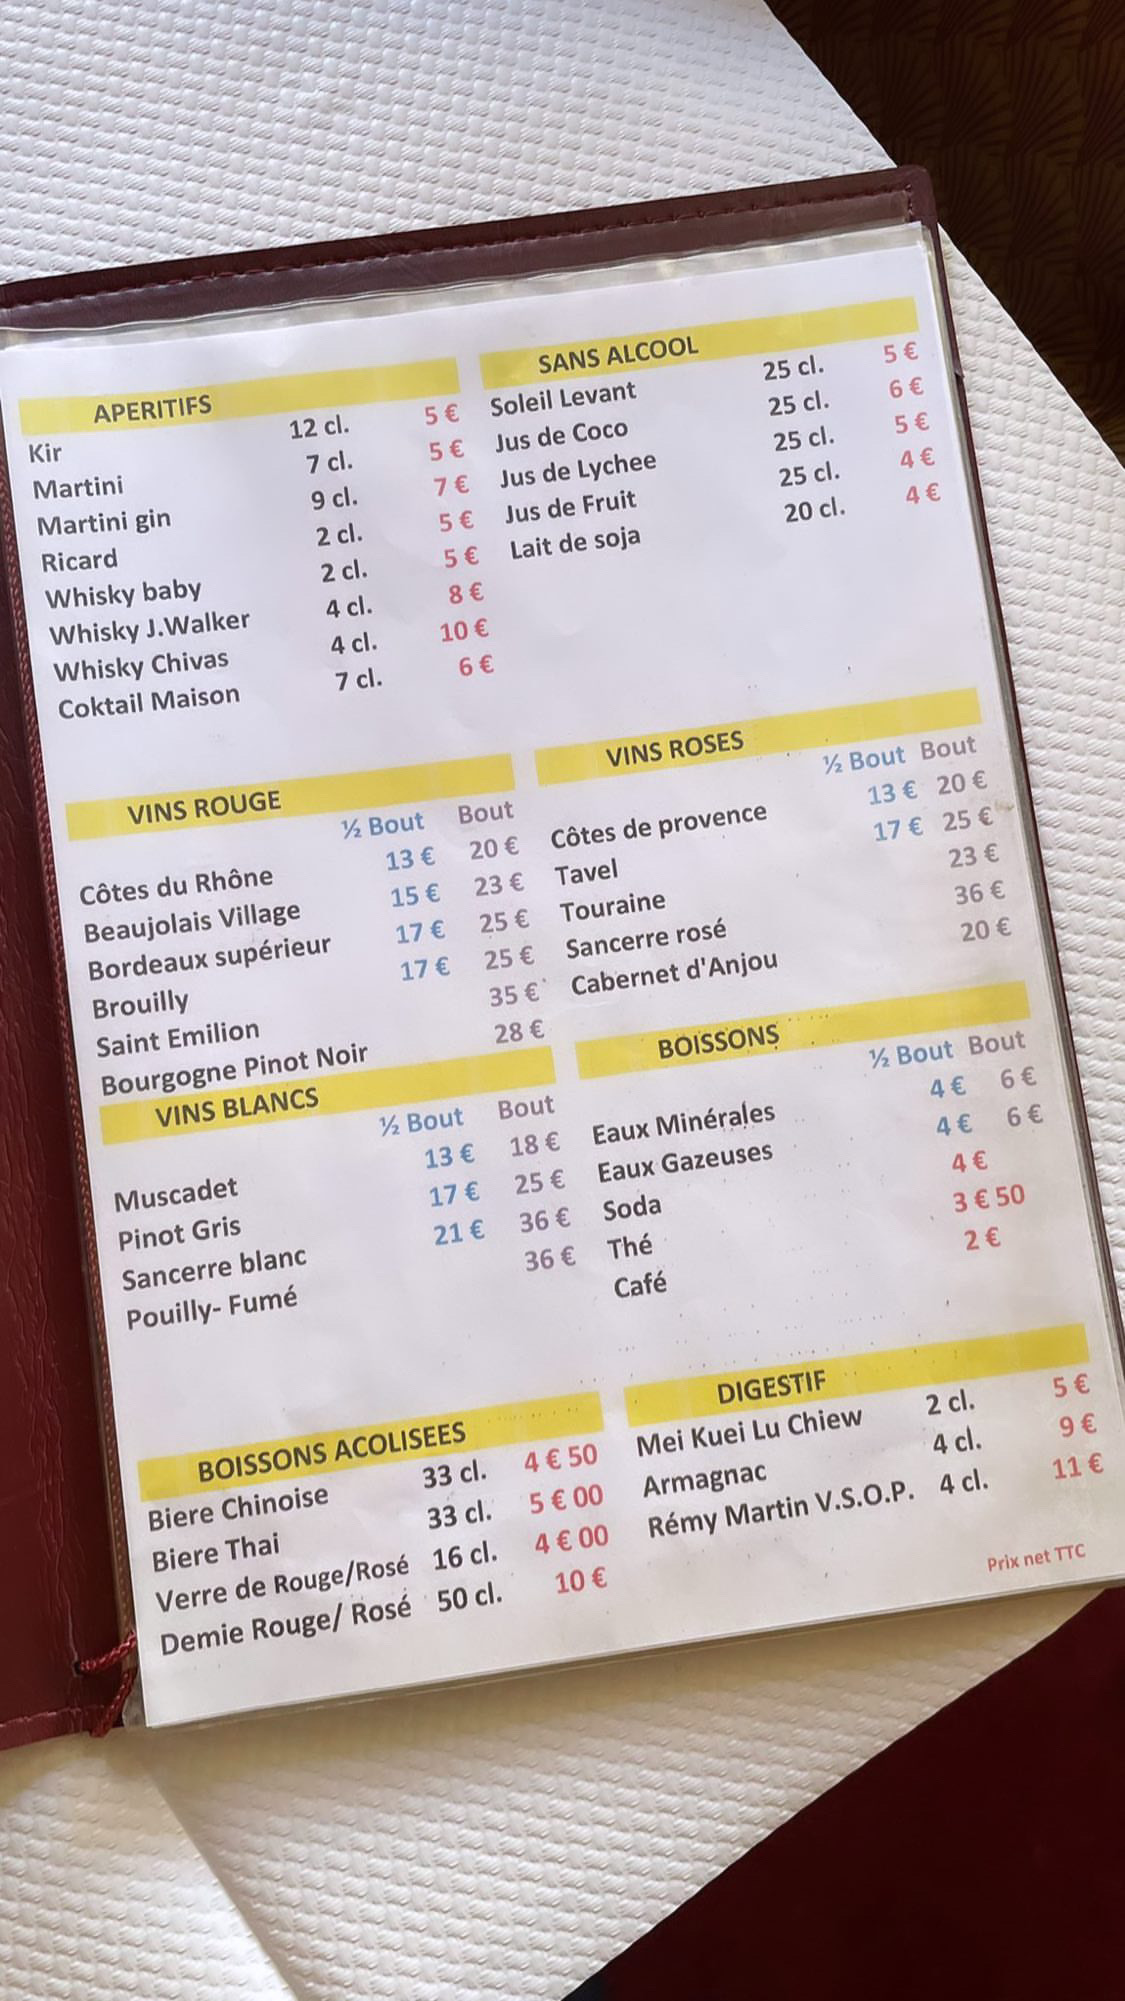 APERITIFS
Kir 12 cl. 5 €
Martini 7 cl. 5 €
Martini gin 9 cl. 7 €
Ricard 2 cl. 5 €
Whisky baby 2 cl. 5 €
Whisky J.Walker 4 cl. 8 €
Whisky Chivas 4 cl. 10 €
Coktail Maison 7 cl. 6 €
SANS ALCOOL
Soleil Levant 25 cl. 5 €
Jus de Coco 25 cl. 6 €
Jus de Lychee 25 cl. 5 €
Jus de Fruit 25 cl. 4 €
Lait de soja 20 cl. 4 €
VINS ROUGE
½ Bout Bout
Côtes du Rhône 13 € 20 €
Beaujolais Village 15 € 23 €
Bordeaux supérieur 17 € 25 €
Brouilly 17 € 25 €
Saint Emilion 35 €
Bourgogne Pinot Noir 28 €
VINS ROSES
½ Bout Bout
Côtes de provence 13 € 20 €
Tavel 17 € 25 €
Touraine 23 €
Sancerre rosé 36 €
Cabernet d'Anjou 20 €
VINS BLANCS
½ Bout Bout
Muscadet 13 € 18 €
Pinot Gris 17 € 25 €
Sancerre blanc 21 € 36 €
Pouilly- Fumé 36 €
BOISSONS
½ Bout Bout
Eaux Minérales 4 € 6 €
Eaux Gazeuses 4 € 6 €
Soda 4 €
Thé 3 € 50
Café 2 €
BOISSONS ACOLISEES
Biere Chinoise 33 cl. 4 € 50
Biere Thai 33 cl. 5 € 00
Verre de Rouge/Rosé 16 cl. 4 € 00
Demie Rouge/ Rosé 50 cl. 10 €
DIGESTIF
Mei Kuei Lu Chiew 2 cl. 5 €
Armagnac 4 cl. 9 €
Rémy Martin V.S.O.P. 4 cl. 11 €
Prix net TTC